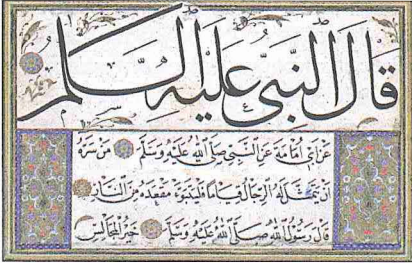 قال النبي عليه السلم
عن أبي أمامة عن النبي صلى الله عليه وسلم من سره
أن يتمثل له الرجال قياما فليتبوء مقعده من النار
قال رسول الله صلى الله عليه وسلم خير المجالس